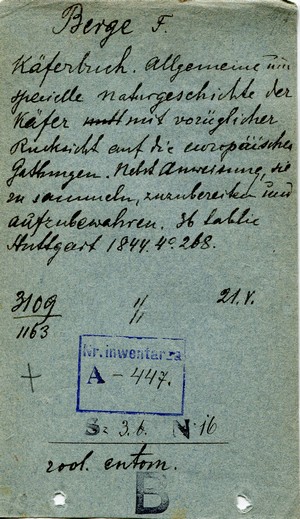 Berge F.
Käferbuch. Allgemeine und
specielle Naturgeschichte der
Käfer mit vorzüglicher
Rücksicht auf die europäischen
Gattungen. Nebst Anweisung, sie
zu sammeln, zuzubereiten und
aufzubewahren. 36 
Stuttgart 1844. 4o. 268.
3109 " 21.V.
1163 "
Nr. inwentarza
A - 447.
S: 3.b. N: 16
zool. entom.
B